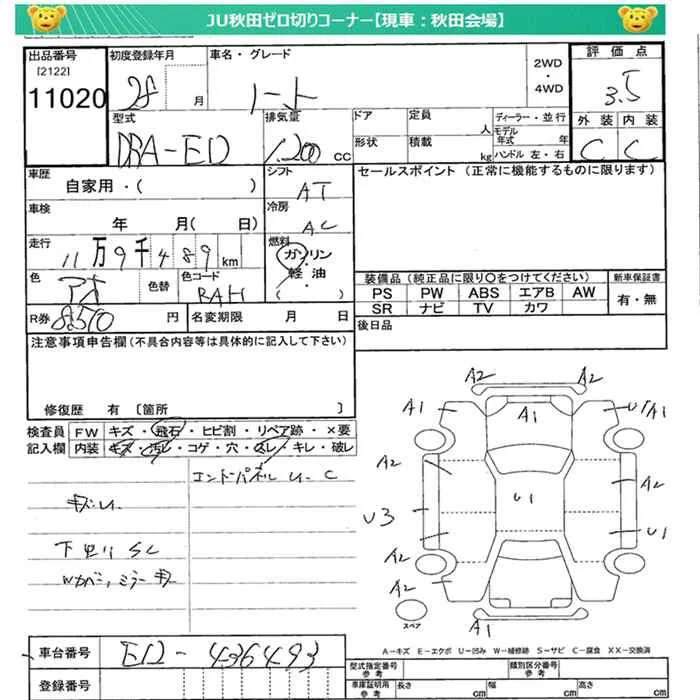 JU秋田ゼロ切りコーナー【現車：秋田会場】
出品番号
[2122]
11020
初度登録年月
28 月
車名・グレード
ノート
2WD
・
4WD
評価点
3.5
外装 内装
C C
型式
DBA-E12
排気量
1.200 cc
ドア
形状
定員 人
積載 kg
ディーラー・並行
モデル年式 年
ハンドル 左・右
車歴
自家用・( )
シフト
AT
セールスポイント（正常に機能するものに限ります）
車検
年 月( 日)
冷房
AC
走行
11万9千489km
燃料
ガソリン
・
軽油
( )
色
色替
色コード
装備品（純正品に限り○をつけてください）
新車保証書
PS PW ABS エアB AW
SR ナビ TV カワ
有・無
R券 8510 円
名変期限 月 日
後日品
注意事項申告欄（不具合内容等は具体的に記入して下さい）
修復歴 有 [箇所 ]
検査員 FW キズ・飛石・ヒビ割・リペア跡・×要
記入欄 内装 キズ・汚レ・コゲ・穴・スレ・キレ・破レ
U. C
キズU.
下廻りSC
A2 A2
A1 A1 U1A1
A2 A2
U3 U1 U1
A2
A2
スペア
A1
A－キズ E－エクボ U－凹み W－補修跡 S－サビ C－腐食 XX－交換済
車台番号 E12-436493
登録番号
型式指定番号
参考
類別区分番号
参考
車庫証明用
参考
長さ cm 幅 cm 高さ cm